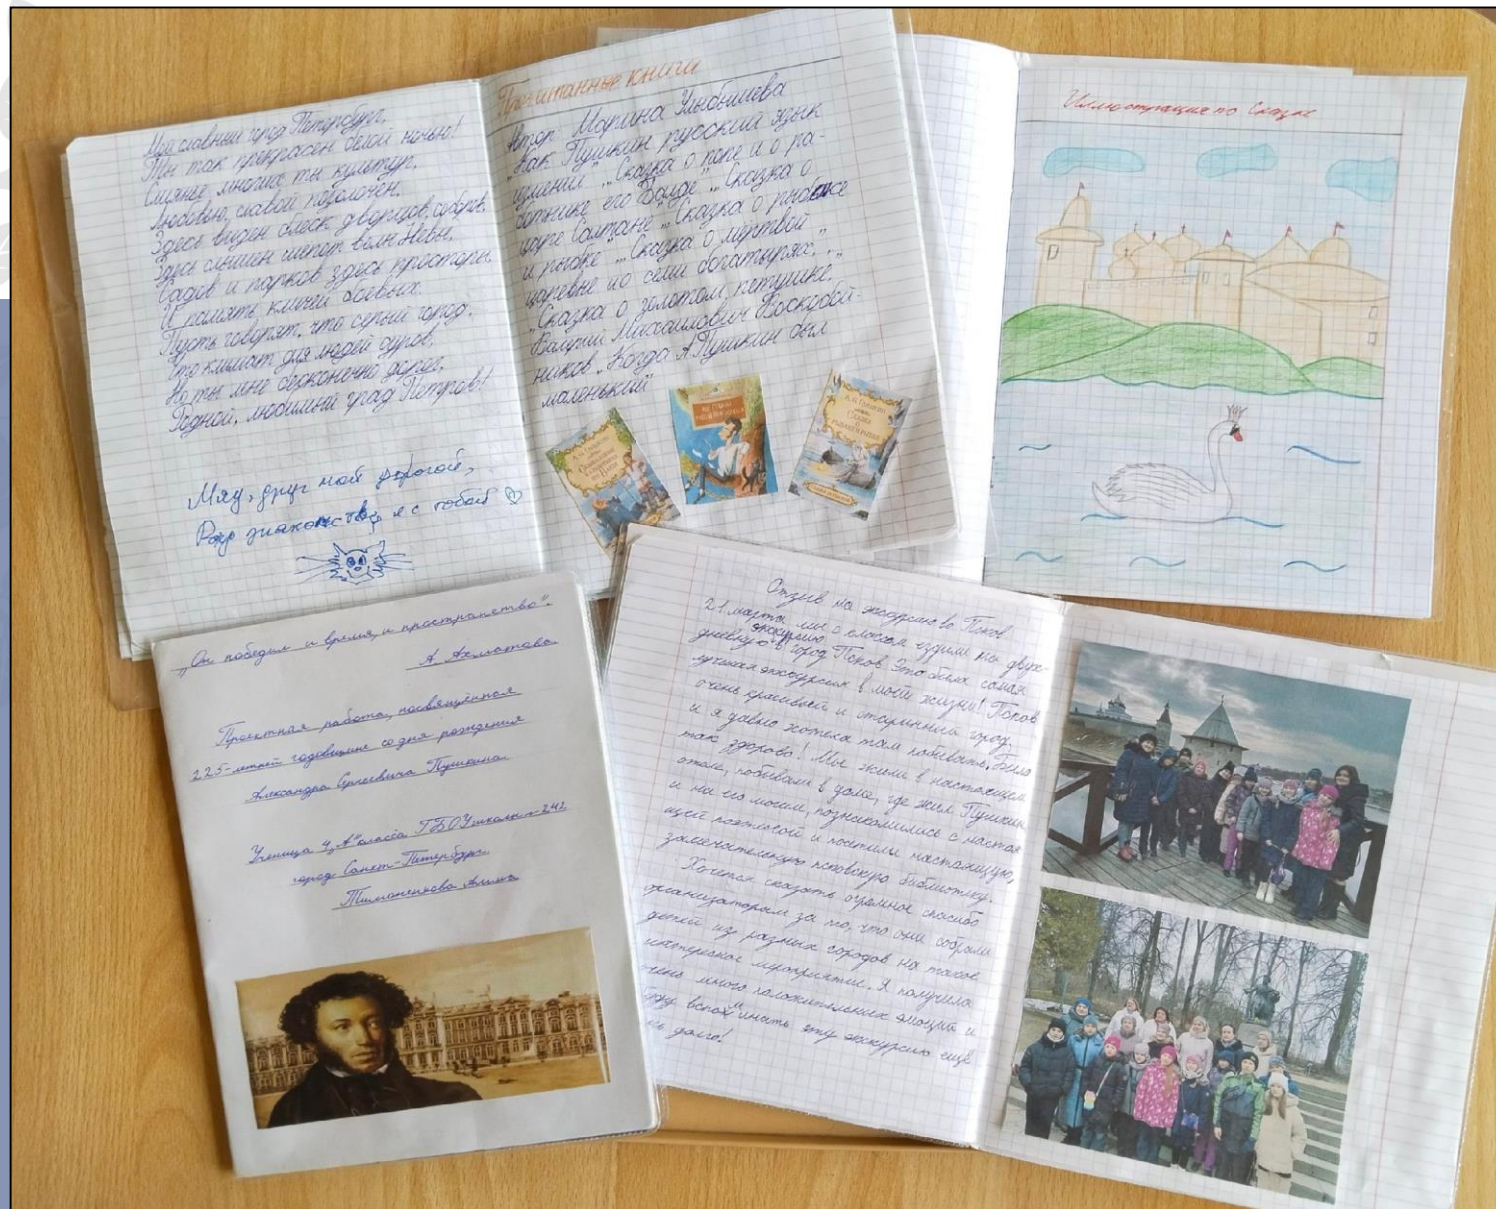 Мой славный город Петербург,
Ты так прекрасен белой ночью!
Слияние многих ты культур,
Любовью, славой позолочен.
Здесь виден блеск дворцов, соборов,
Здесь слышен шепот волн Невы,
Садов и парков здесь просторы
И память
Пусть говорят, что серый город,
Что климат для людей суров,
Но ты мне бесконечно дорог,
Родной, любимый град Петров!
Мяу, друг мой дорогой,
Рад знакомству я с тобой
Прочитанные книги
Автор Марина Улыбышева
„Как Пушкин русский язык
изменил" „Сказка о попе и о ра-
ботнике его Балде" „Сказка о
царе Салтане" „Сказка о рыбаке
и рыбке" „Сказка о мёртвой
царевне и о семи богатырях",
„Сказка о золотом петушке."
Валерий Михайлович Воскобой-
ников „Когда А. Пушкин был
маленький"
Иллюстрация по Сказке
„Он победил и время, и пространство".
А Ахматова
Проектная работа, посвящённая
225-летней годовщине со дня рождения
Александра Сергеевича Пушкина.
Ученица 4 „А" класса ГБОУ школы №242
город Санкт-Петербург
Алина
Отзыв на экскурсию во Псков
21 марта мы с классом ездили на двух-
экскурсию
дневную в город Псков Это была самая
лучшая экскурсия в моей жизни! Псков
очень красивый и старинный город,
и я давно хотела там побывать. Было
так здорово! Мы жили в настоящем
отеле, побывали в доме, где жил Пушкин
и на его могиле, познакомились с настоя
щей поэтессой и посетили настоящую,
замечательную псковскую библиотеку.
Хочется сказать огромное спасибо
организаторам за то, что они собрали
детей из разных городов на такое
интересное мероприятие. Я получила
очень много положительных эмоций и
буду вспоминать эту экскурсию ещё
долго!